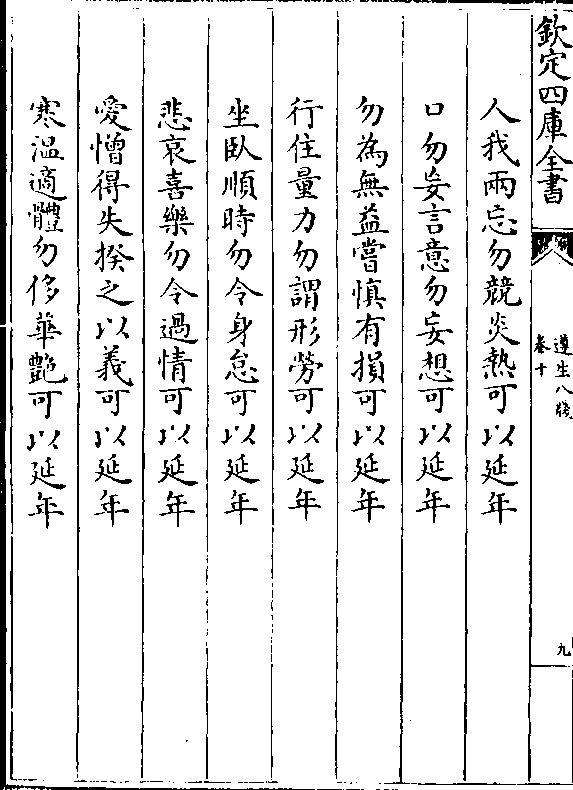 欽定四庫全書
遵生八牋
卷十
九
人我兩忘勿競炎熱可以延年
口勿妄言意勿妄想可以延年
勿為無益嘗慎有損可以延年
行住量力勿謂形勞可以延年
坐臥順時勿令身怠可以延年
悲哀喜樂勿令過情可以延年
愛憎得失揆之以義可以延年
寒溫適體勿侈華艷可以延年